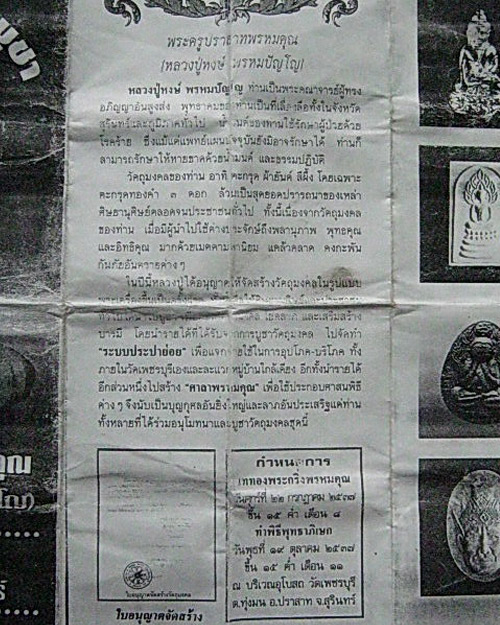 พระครูปราสาทพรหมคุณ
(หลวงปู่หงษ์ พรหมปัญโญ)
หลวงปู่หงษ์ พรหมปัญโญ ท่านเป็นพระคณาจารย์ผู้ทรง
อภิญญาอันสูงส่ง พุทธาคมของท่านเป็นที่เลื่องลือทั้งในจังหวัด
สุรินทร์และภูมิภาคทั่วไป น้ำมนต์ของท่านใช้รักษาผู้ป่วยด้วย
โรคร้าย ซึ่งแม้แต่แพทย์แผนปัจจุบันยังมิอาจรักษาได้ ท่านก็
สามารถรักษาให้หายขาดด้วยน้ำมนต์ และธรรมปฏิบัติ
วัตถุมงคลของท่าน อาทิ ตะกรุด ผ้ายันต์ สีผึ้ง โดยเฉพาะ
ตะกรุดทองคำ ๓ ดอก ล้วนเป็นสุดยอดปรารถนาของเหล่า
ศิษยานุศิษย์ตลอดจนประชาชนทั่วไป ทั้งนี้เนื่องจากวัตถุมงคล
ของท่าน เมื่อมีผู้นำไปใช้ต่างประจักษ์ถึงพลานุภาพ พุทธคุณ
และอิทธิคุณ มากด้วยเมตตามหานิยม แคล้วคลาด คงกะพัน
กันภัยอันตรายต่างๆ
ในปีนี้หลวงปู่ได้อนุญาตให้จัดสร้างวัตถุมงคลในรูปแบบ
และเสริมสร้าง
บารมี โดยนำรายได้ที่ได้รับจากการบูชาวัตถุมงคล ไปจัดทำ
"ระบบประปาย่อย" เพื่อแจกจ่ายใช้ในการอุปโภค-บริโภค ทั้ง
ภายในวัดเพชรบุรีเองและละแวกหมู่บ้านใกล้เคียง อีกทั้งนำรายได้
อีกส่วนหนึ่งไปสร้าง "ศาลาพรหมคุณ" เพื่อใช้ประกอบศาสนพิธี
ต่างๆ จึงนับเป็นบุญกุศลอันยิ่งใหญ่และลาภอันประเสริฐแด่ท่าน
ทั้งหลายที่ได้ร่วมอนุโมทนาและบูชาวัตถุมงคลชุดนี้
ใบอนุญาตจัดสร้างวัตถุมงคล
ใบอนุญาตจัดสร้าง
กำหนดการ
เททองพระกริ่งพรหมคุณ
วันศุกร์ที่ ๒๒ กรกฎาคม ๒๕๓๗
ขึ้น ๑๕ ค่ำ เดือน ๘
ทำพิธีพุทธาภิเษก
วันพุธที่ ๑๙ ตุลาคม ๒๕๓๗
ขึ้น ๑๕ ค่ำ เดือน ๑๑
ณ บริเวณอุโบสถ วัดเพชรบุรี
ต.ทุ่งมน อ.ปราสาท จ.สุรินทร์